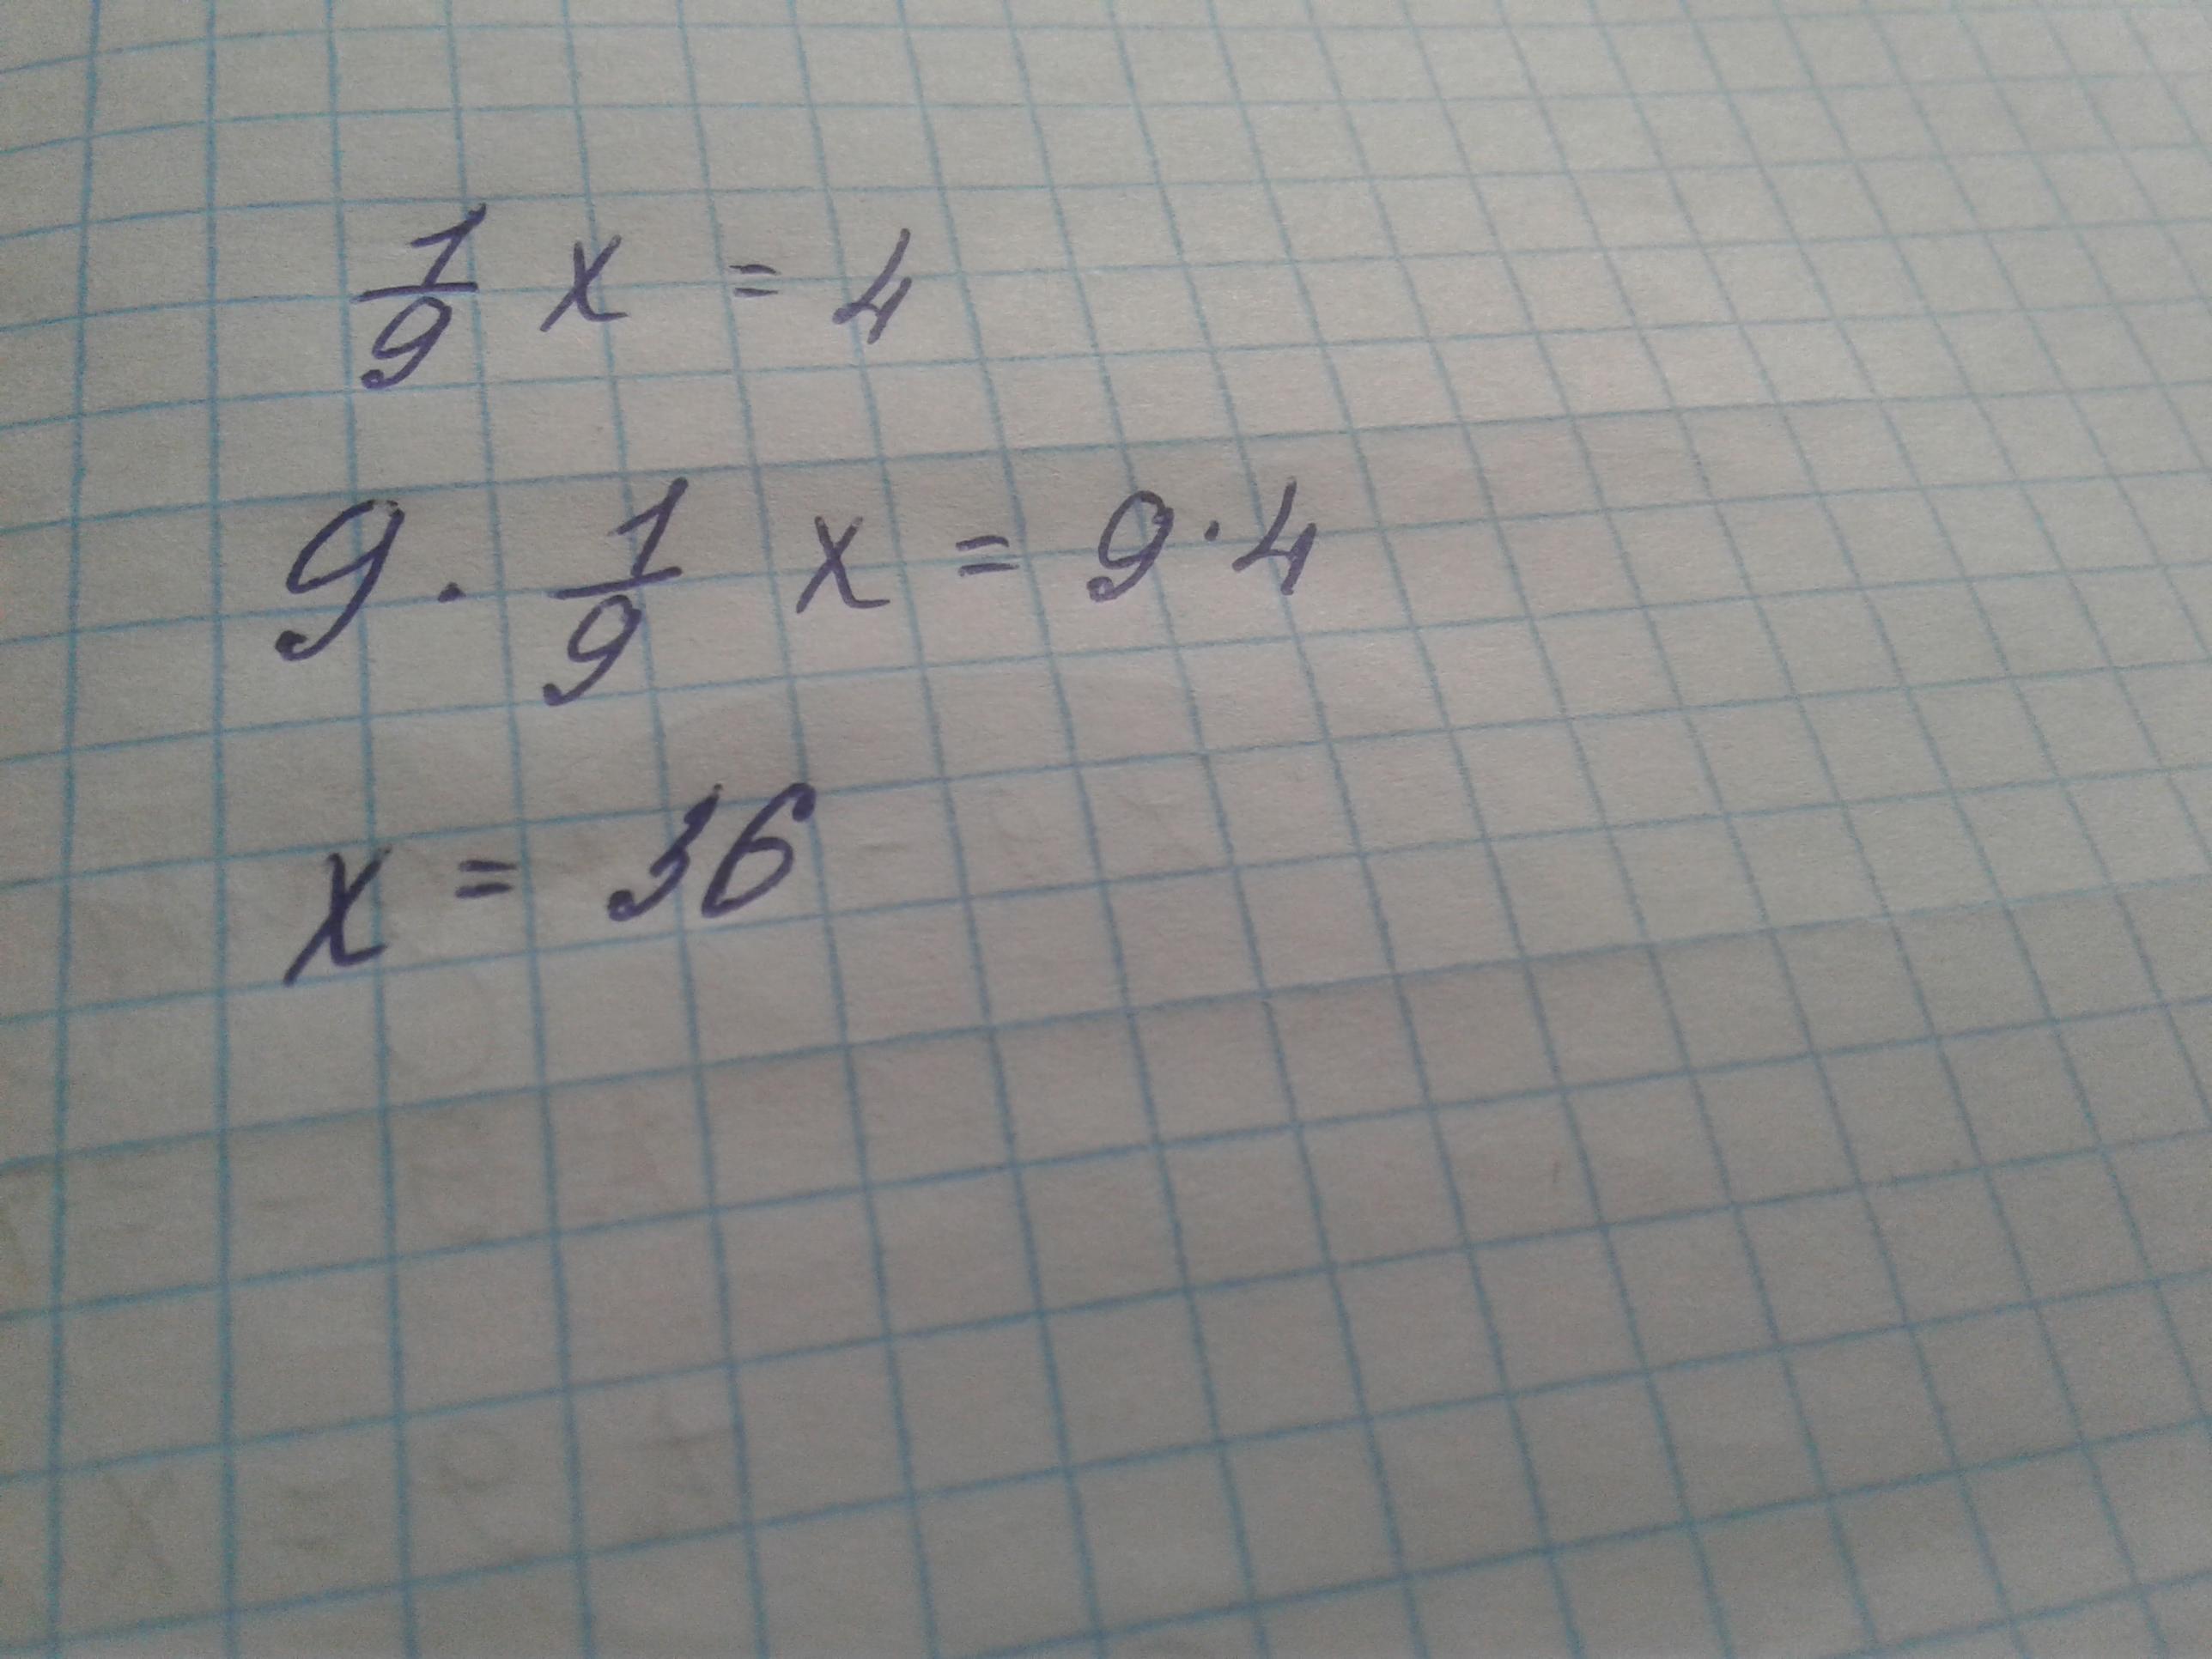 1/9 x = 4
9 · 1/9 x = 9 · 4
x = 36